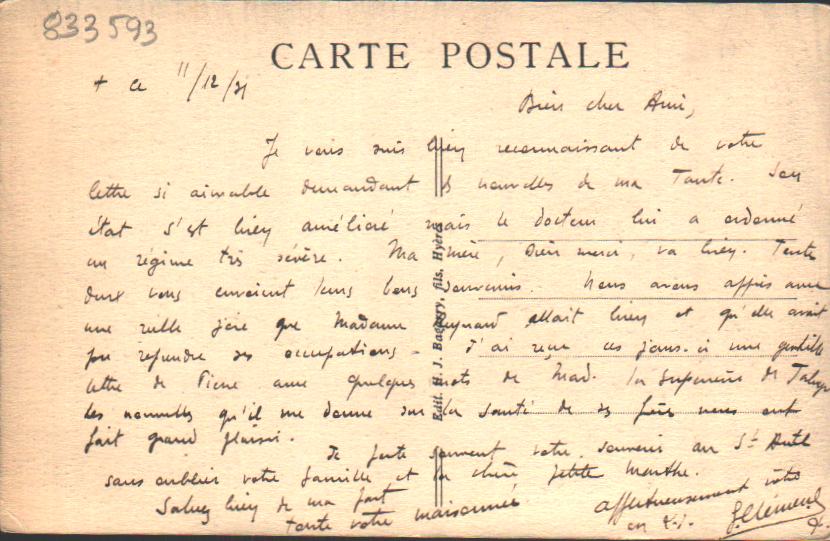 833593
CARTE POSTALE
+ ce 11/12/31
Bien cher Ami,
Je vous suis bien reconnaissant de votre
lettre si aimable demandant des nouvelles de ma Tante. Son
état s'est bien amélioré mais le docteur lui a ordonné
un régime très sévère. Ma mère, Dieu merci, va bien. Toutes
deux vous envoient leurs bons souvenirs. Nous avons appris avec
une réelle joie que Madame allait bien et qu'elle avait
pu reprendre ses occupations - J'ai reçu ces jours-ci une gentille
lettre de Pierre avec quelques mots de Mad. la Supérieure de
Les nouvelles qu'il me donne sur la santé de ses frères m'ont
fait grand plaisir.
Je porte souvent votre souvenir au St Autel
sans oublier votre famille et la chère petite Marthe.
Saluez bien de ma part
toute votre maisonnée
affectueusement vôtre
en
J. Clément
Edit. H. J. fils, Hyères